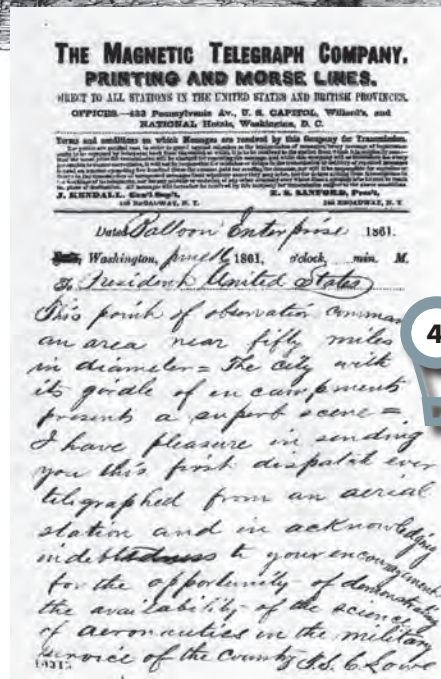 THE MAGNETIC TELEGRAPH COMPANY.
PRINTING AND MORSE LINES.
DIRECT TO ALL STATIONS IN THE UNITED STATES AND BRITISH PROVINCES.
OFFICES.—432 Pennsylvania Av., U. S. CAPITOL, Willard's, and
NATIONAL Hotels, Washington, D. C.
Terms and conditions on which Messages are received by this Company for Transmission.
J. KENDALL, Gen'l Sup't. E. S. SANFORD, Pres't.
BROADWAY, N. Y. BROADWAY, N. Y.
Dated Balloon Enterprise 1861.
Washington, June 1861, o'clock, min. M.
To President United States
This point of observation comman
an area near fifty miles
in diameter = The city with
its girdle of encampments
presents a superb scene =
I have pleasure in sending
you this first dispatch ever
telegraphed from an aerial
station and in acknowledging
indebtedness to your encouragement
for the opportunity of demonstrating
the availability of the science
of aeronautics in the military
service of the country T.S.C. Lowe
4